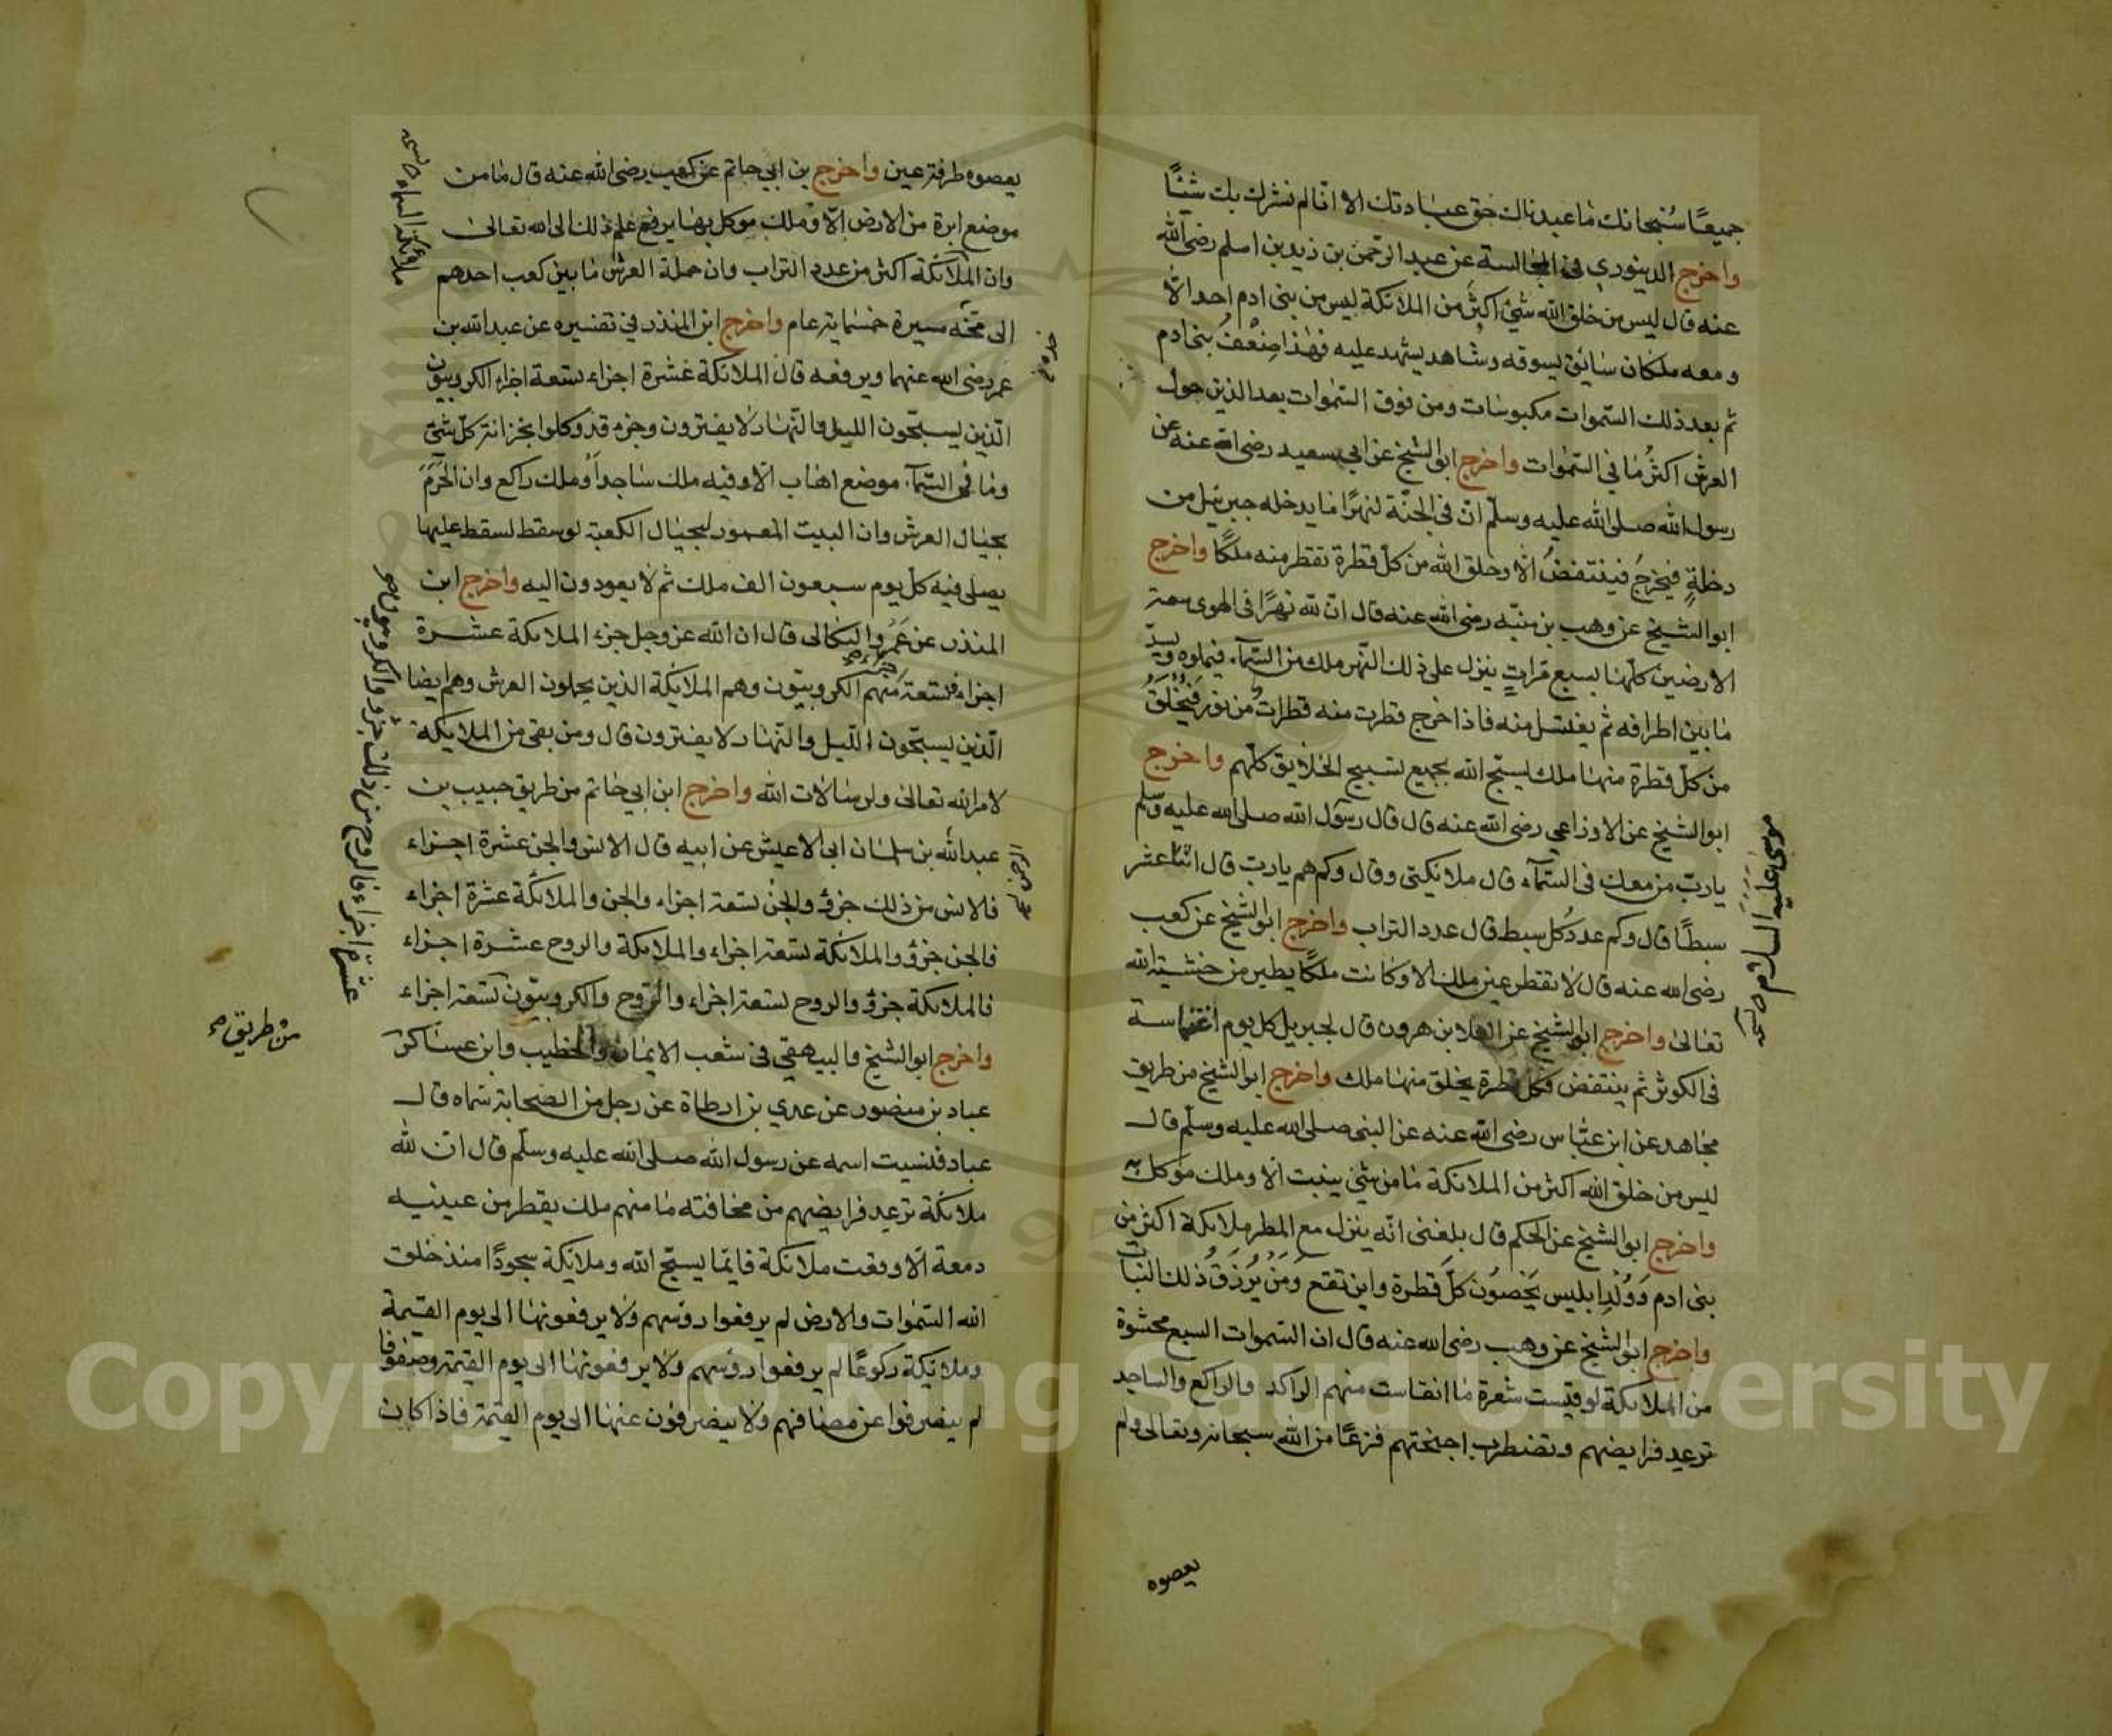 جميعًا سُبْحانك ما عبدناك حق عبادتك الا انّا لم نشرك بك شيئًا
واخرج الدينوري في المجالسة عن عبد الرّحمن بن زيد بن اسلم رضي الله
عنه قال ليس من خلق الله شئ اكثر من الملائكة ليس من بني ادم احد الاّ
ومعه ملكان سائق يسوقه وشاهد يشهد عليه فهٰذا ضِعْفُ بني ادم
ثم بعد ذلك السّموات مكبوسات ومن فوق السّموات بعد الذين حول
العرش اكثرُ مما في السّموات واخرج ابو الشيخ عن ابي سعيد رضي الله عنه عن
رسول الله صلى الله عليه وسلّم انّ في الجنّة لنهرًا ما يدخله جبرئيل من
دخلةٍ فيخرجُ فينتفضُ الّا وخلق الله من كلّ قطرة تقطر منه ملكًا واخرج
ابو الشيخ عن وهب بن منبّه رضي الله عنه قال انّ لله نهرًا في الهوى سعة
الارضين كلّها سبع مرّاتٍ ينزل على ذلك النّهر ملك من السّمآء فيملوه ويسدّ
ما بين اطرافه ثم يغتسل منه فاذا خرج قطرت منه قطراتٌ من نور فَيُخْلَقُ
من كلّ قطرة منها ملك يسبّح الله بجميع تسبيح الخلايق كلّهم واخرج
ابو الشيخ عن الاوزاعي رضي الله عنه قال قال رسول الله صلى الله عليه وسلم
ياربّ من معك في السّمآء قال ملائكتي وقال وكم هم يارب قال اثنا عشر
سبطًا قال وكم عددُ كل سبط قال عدد التراب واخرج ابو الشيخ عن كعب
رضي الله عنه قال لا تقطر عين ملك الا وكانت ملكًا يطير من خشية الله
تعالى واخرج ابو الشيخ عن العلا بن هرون قال لجبريل كل يوم انغماسة
في الكوثر ثم ينتفض فكل قطرة يخلق منها ملك واخرج ابو الشيخ من طريق
مجاهد عن ابن عبّاس رضي الله عنه عن النبي صلى الله عليه وسلّم قال
ليس من خلق الله اكثر من الملائكة ما من شئ ينبت الا وملك موكل به
واخرج ابو الشيخ عن الحكم قال بلغني انّه ينزل مع المطر ملائكة اكثر من
بني ادم وَوُلْدِ ابليس يَحْصُون كلّ قطرة واين تقع وَمَنْ يُرْزَقُ ذلك النبات
واخرج ابو الشيخ عن وهب رضي الله عنه قال ان السّموات السبع محشوة
من الملائكة لو قيست شعرة ما انقاست منهم الراكد والراكع والساجد
ترعد فرايضهم وتضطرب اجنحتهم فزعًا من الله سبحانه وتعالى ولم
يعصوه
موسى عليه السلام صح نسخه
يعصوه طرفة عين واخرج بن ابي حاتم عن كعب رضي الله عنه قال ما من
موضع ابرة من الارض الّا وملك موكل بها يرفع علم ذلك الى الله تعالى
وان الملآئكة اكثر من عدد التراب وان حملة العرش ما بين كعب احدهم
الى مخّه مسيرة خمسماية عام واخرج ابن المنذر في تفسيره عن عبد الله بن
عمر رضي الله عنهما ويرفعه قال الملائكة عشرة اجزاء تسعة اجزاء الكروبيّون
الّذين يسبّحون الليل والنّهار لا يفترون وجزء قد وكلوا بخزانة كلّ شئ
وما في السّمآء موضع اهاب الّا وفيه ملك ساجد أو ملك راكع وان الحَرَمَ
بحيال العرش وان البيت المعمور لبحيال الكعبة لو سقط لسقط عليها
يصلى فيه كلّ يوم سبعون الف ملك ثم لا يعودون اليه واخرج ابن
المنذر عن عَمْرو البكالى قال ان الله عزّ وجل جزء الملائكة عشرة
اجزاء فتسعة منهم الكروبيّون وهم الملائكة الذين يحملون العرش وهم ايضا
الّذين يسبّحون اللّيل والنّهار لا يفترون قال ومن بقي من الملائكة
لامر الله تعالى ولرسالات الله واخرج ابن ابي حاتم من طريق حبيب بن
عبد الله بن سلمان ابي الاعيش عن ابيه قال الانس والجن عشرة اجزاء
فالانس من ذلك جزؤ والجنّ تسعة اجزاء والجن والملائكة عشرة اجزاء
فالجن جزؤ والملائكة تسعة اجزاء والملائكة والروح عشرة اجزاء
فالملائكة جزؤ والروح تسعة اجزاء والرّوح والكروبيّون تسعة اجزاء
واخرج ابو الشيخ والبيهقي في شعب الايمان والخطيب وابن عساكر
عباد بن منصور عن عدي بن ارطاة عن رجل من الصحابة سماه قال
عباد فنسيت اسمه عن رسول الله صلى الله عليه وسلّم قال انّ لله
ملائكة ترعد فرايضهم من مخافته ما منهم ملك يقطر من عينيه
دمعة الّا وقعت ملائكة قايمًا يسبّح الله وملائكة سجودًا منذ خلق
الله السّموات والارض لم يرفعوا رؤسهم ولا يرفعونها الى يوم القيمة
وملائكة ركوعًا لم يرفعوا رؤسهم ولا يرفعونها الى يوم القيمة وصفوفا
لم ينصرفوا عن مصافهم ولا ينصرفون عنها الى يوم القيمة فاذا كان
ملائكة السماء صح نسخه
عشرة اجزاء فالروح من ذلك جزؤ والكروبيون صح
من طريق صح
Copyright © King Saud University
1957